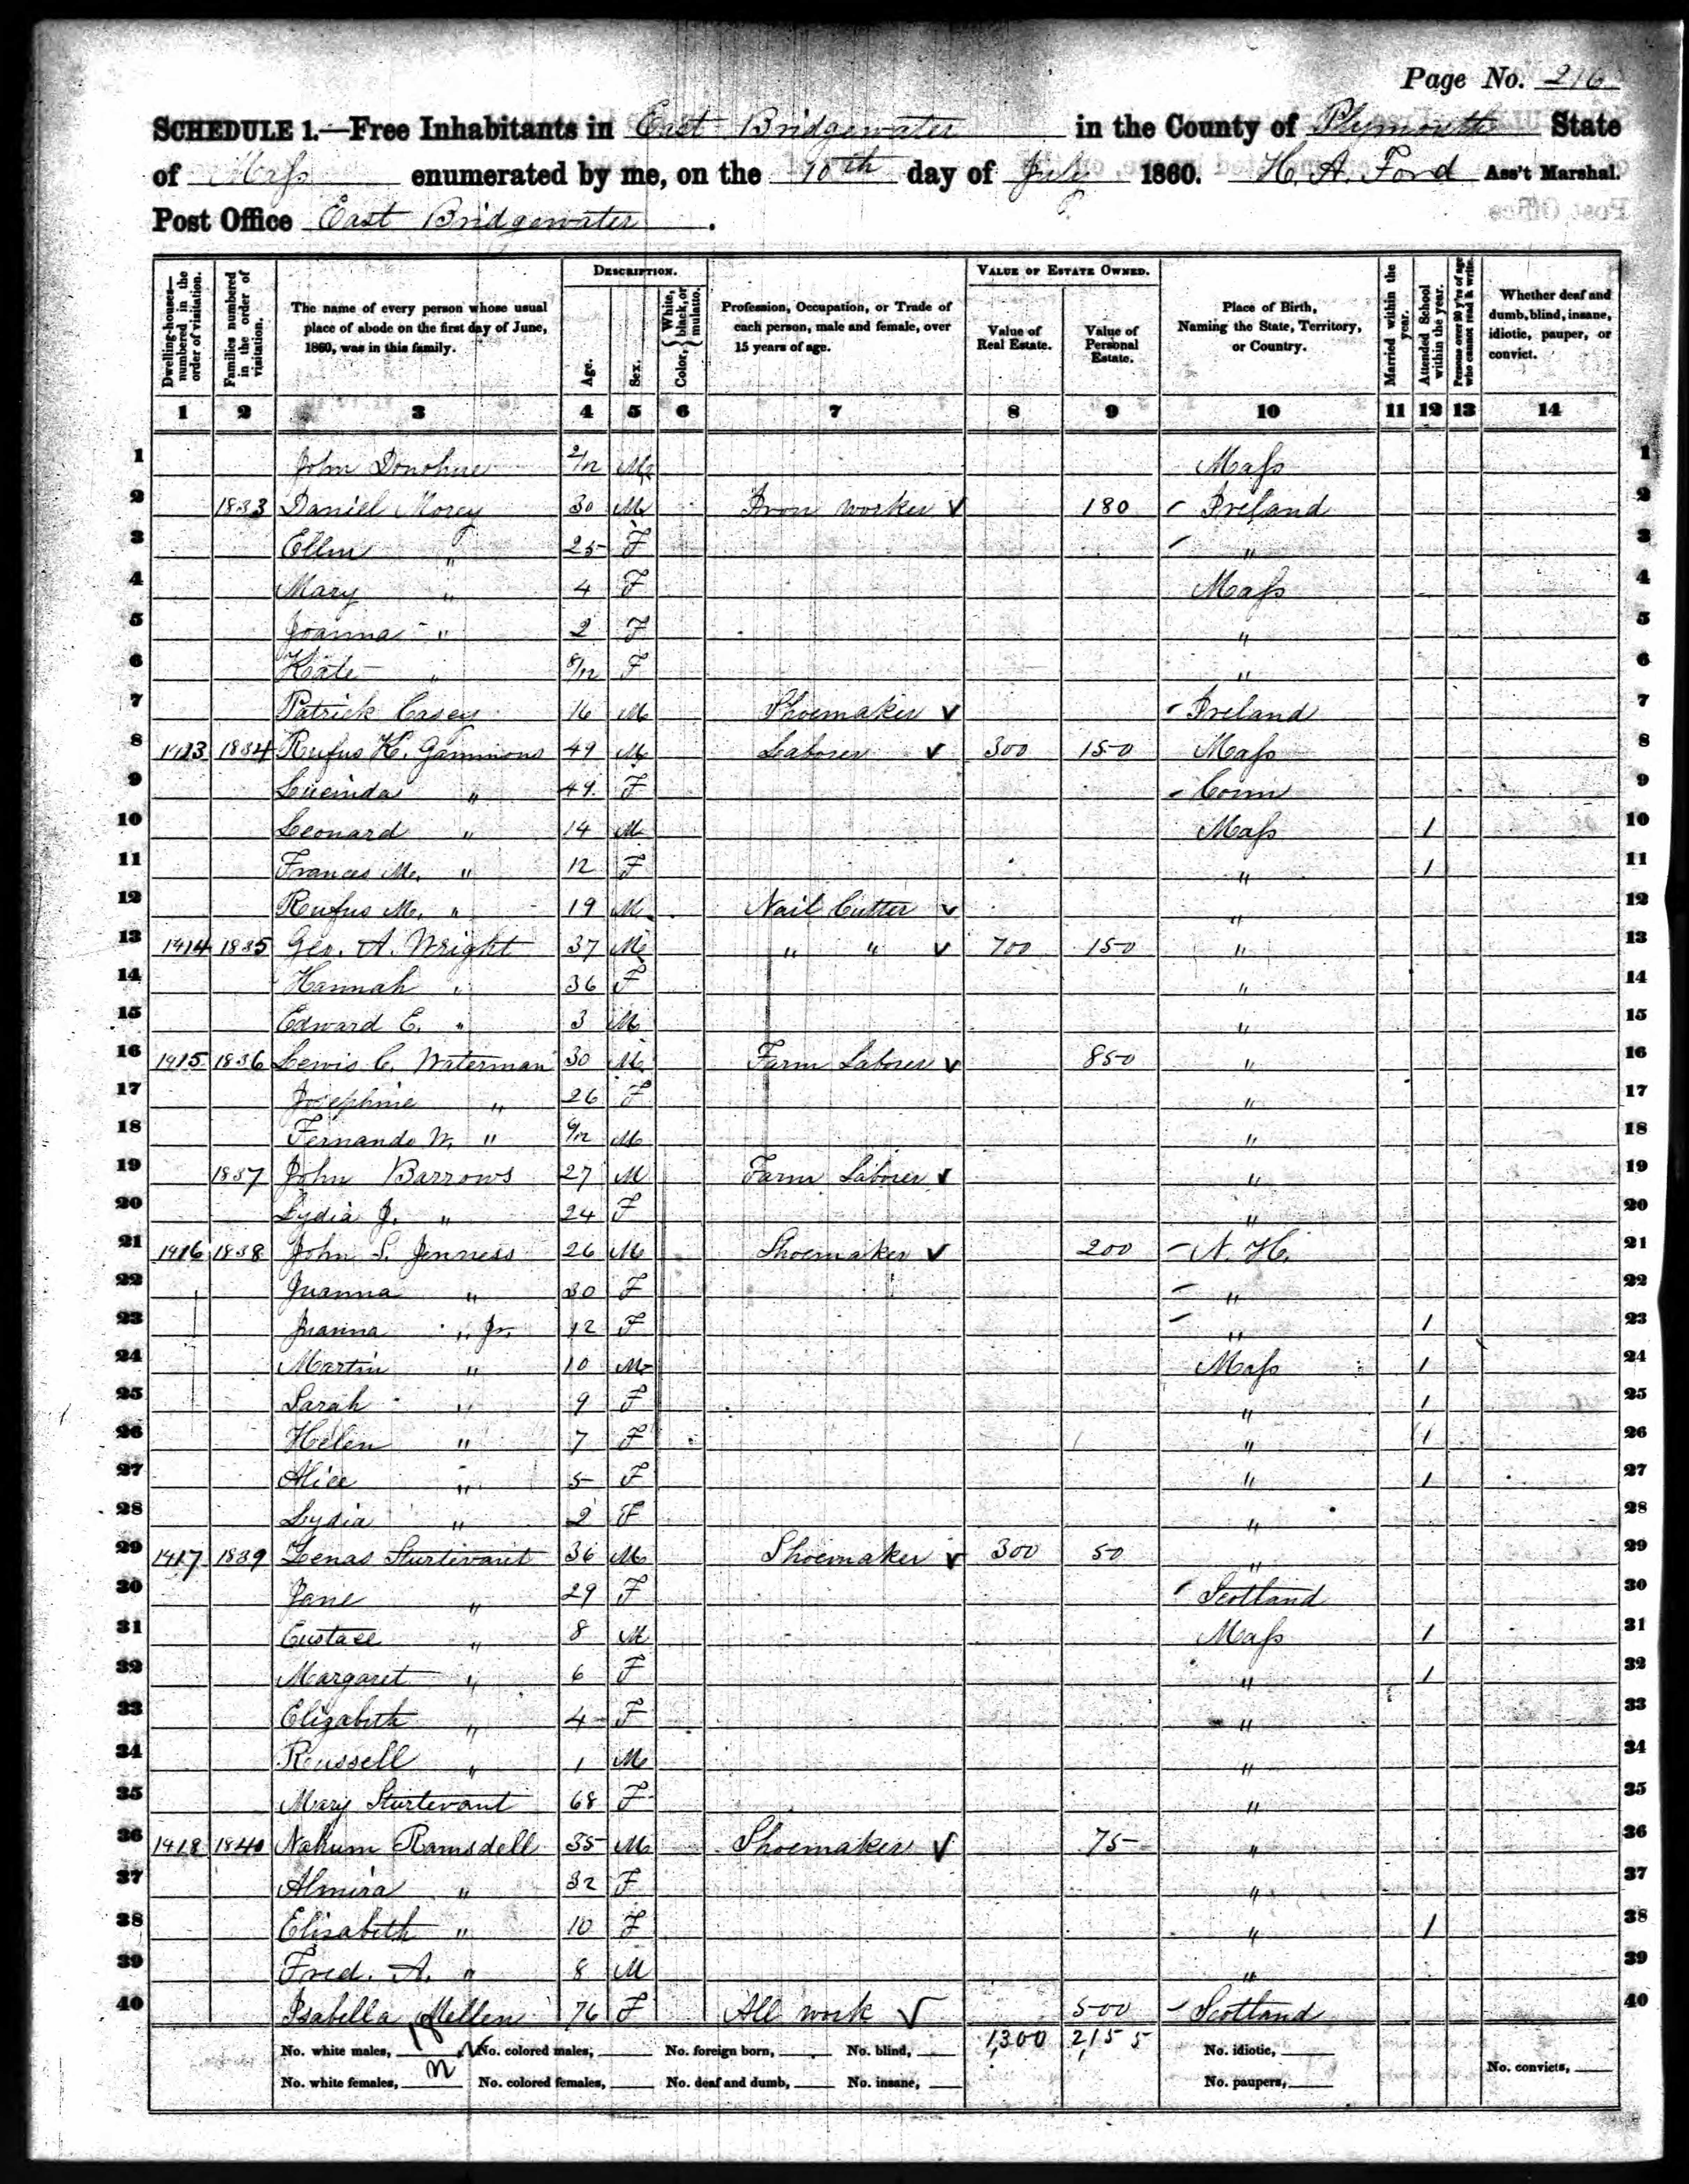 Page No. 216
SCHEDULE 1.—Free Inhabitants in East Bridgewater in the County of Plymouth State
of Mass enumerated by me, on the 10th day of July 1860. H. A. Ford Ass't Marshal.
Post Office East Bridgewater.
DESCRIPTION. VALUE OF ESTATE OWNED.
Dwelling-houses—numbered in the order of visitation. Families numbered in the order of visitation. The name of every person whose usual place of abode on the first day of June, 1860, was in this family. Age. Sex. Color, {White, black, or mulatto. Profession, Occupation, or Trade of each person, male and female, over 15 years of age. Value of Real Estate. Value of Personal Estate. Place of Birth, Naming the State, Territory, or Country. Married within the year. Attended School within the year. Persons over 20 y'rs of age who cannot read & write. Whether deaf and dumb, blind, insane, idiotic, pauper, or convict.
1 2 3 4 5 6 7 8 9 10 11 12 13 14
1 John Donohue 2/12 M Mass 1
2 1833 Daniel Morey 30 M Iron worker 180 Ireland 2
3 Ellen " 25 F " 3
4 Mary " 4 F Mass 4
5 Joanna " 2 F " 5
6 Kate " 8/12 F " 6
7 Patrick Casey 16 M Shoemaker Ireland 7
8 1413 1834 Rufus H. Gammons 49 M Laborer 300 150 Mass 8
9 Lucinda " 49 F Conn 9
10 Leonard " 14 M Mass 1 10
11 Frances M. " 12 F " 1 11
12 Rufus M. " 19 M Nail Cutter " 12
13 1414 1835 Geo. A. Wright 37 M " " 700 150 " 13
14 Hannah " 36 F " 14
15 Edward E. " 3 M " 15
16 1415 1836 Lewis C. Waterman 30 M Farm Laborer 850 " 16
17 Josephine " 26 F " 17
18 Fernando W. " 6/12 M " 18
19 1837 John Barrows 27 M Farm Laborer " 19
20 Lydia J. " 24 F " 20
21 1416 1838 John S. Jenness 26 M Shoemaker 200 N. H. 21
22 Juanna " 30 F " 22
23 Juanna " Jr. 12 F " 1 23
24 Martin " 10 M Mass 1 24
25 Sarah " 9 F " 1 25
26 Helen " 7 F " 1 26
27 Alice " 5 F " 1 27
28 Lydia " 2 F " 28
29 1417 1839 Zenas Sturtevant 36 M Shoemaker 300 50 " 29
30 Jane " 29 F Scotland 30
31 Eustace " 8 M Mass 1 31
32 Margaret " 6 F " 1 32
33 Elizabeth " 4 F " 33
34 Roussell " 1 M " 34
35 Mary Sturtevant 68 F " 35
36 1418 1840 Nahum Ramsdell 35 M Shoemaker 75 " 36
37 Almira " 32 F " 37
38 Elisabeth " 10 F " 1 38
39 Fred. A. " 8 M " 39
40 Isabella Mellen 76 F All work 500 Scotland 40
No. white males, 18 No. colored males, No. foreign born, No. blind, 1,300 2,155 No. idiotic,
No. white females, No. colored females, No. deaf and dumb, No. insane, No. paupers, No. convicts,